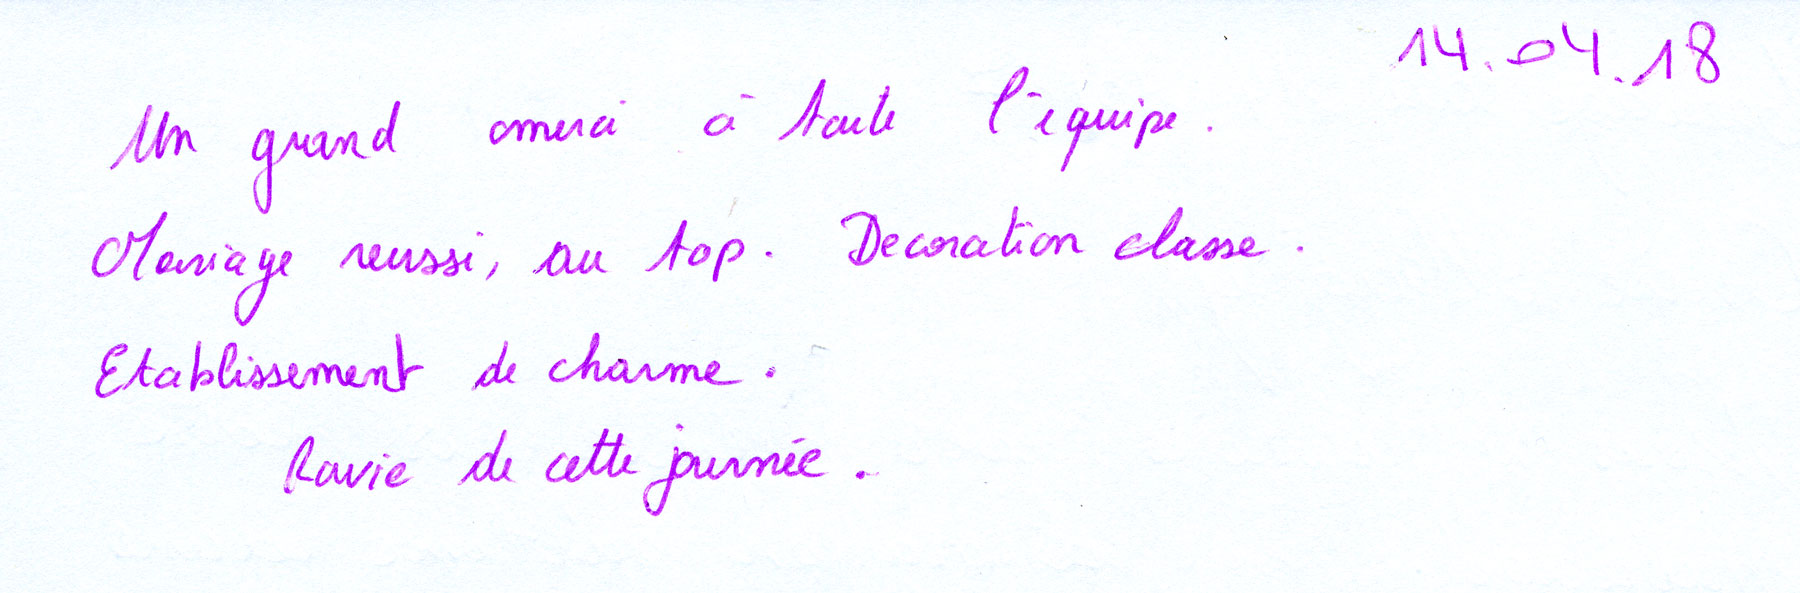 14.04.18
Un grand merci à toute l'équipe.
Mariage reussi, au top. Decoration classe.
Etablissement de charme.
Ravie de cette journée.